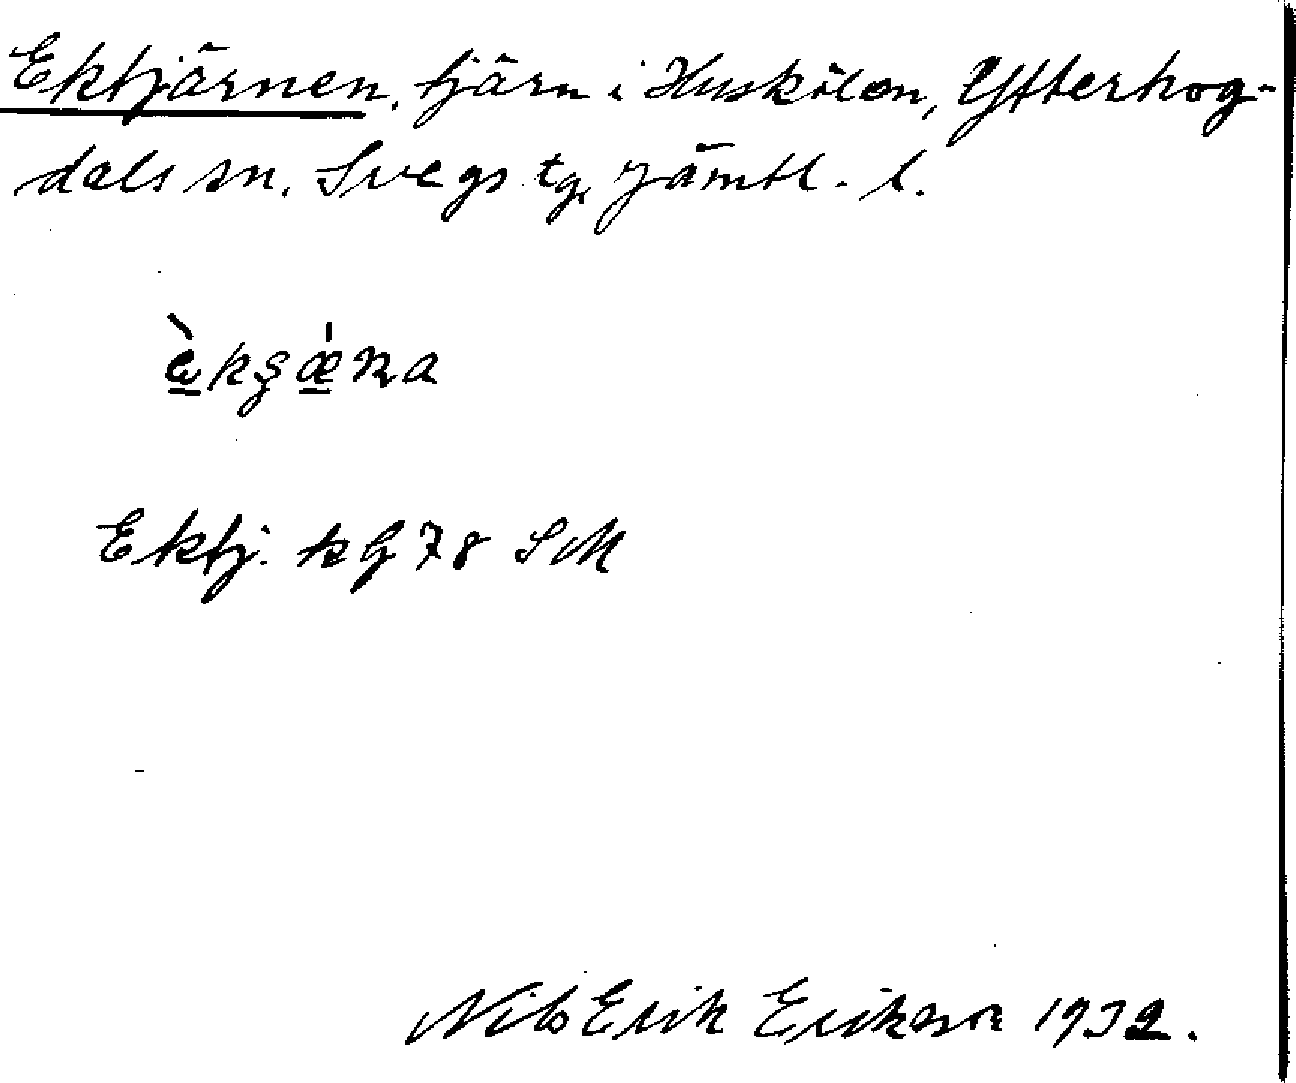 Ektjärnen, tjärn i Huskölen, Ytterhog-
dals sn. Svegs tg, Jämtl. l.
Ektj. k G 78 SM
Nils Erik Erikson 1932.